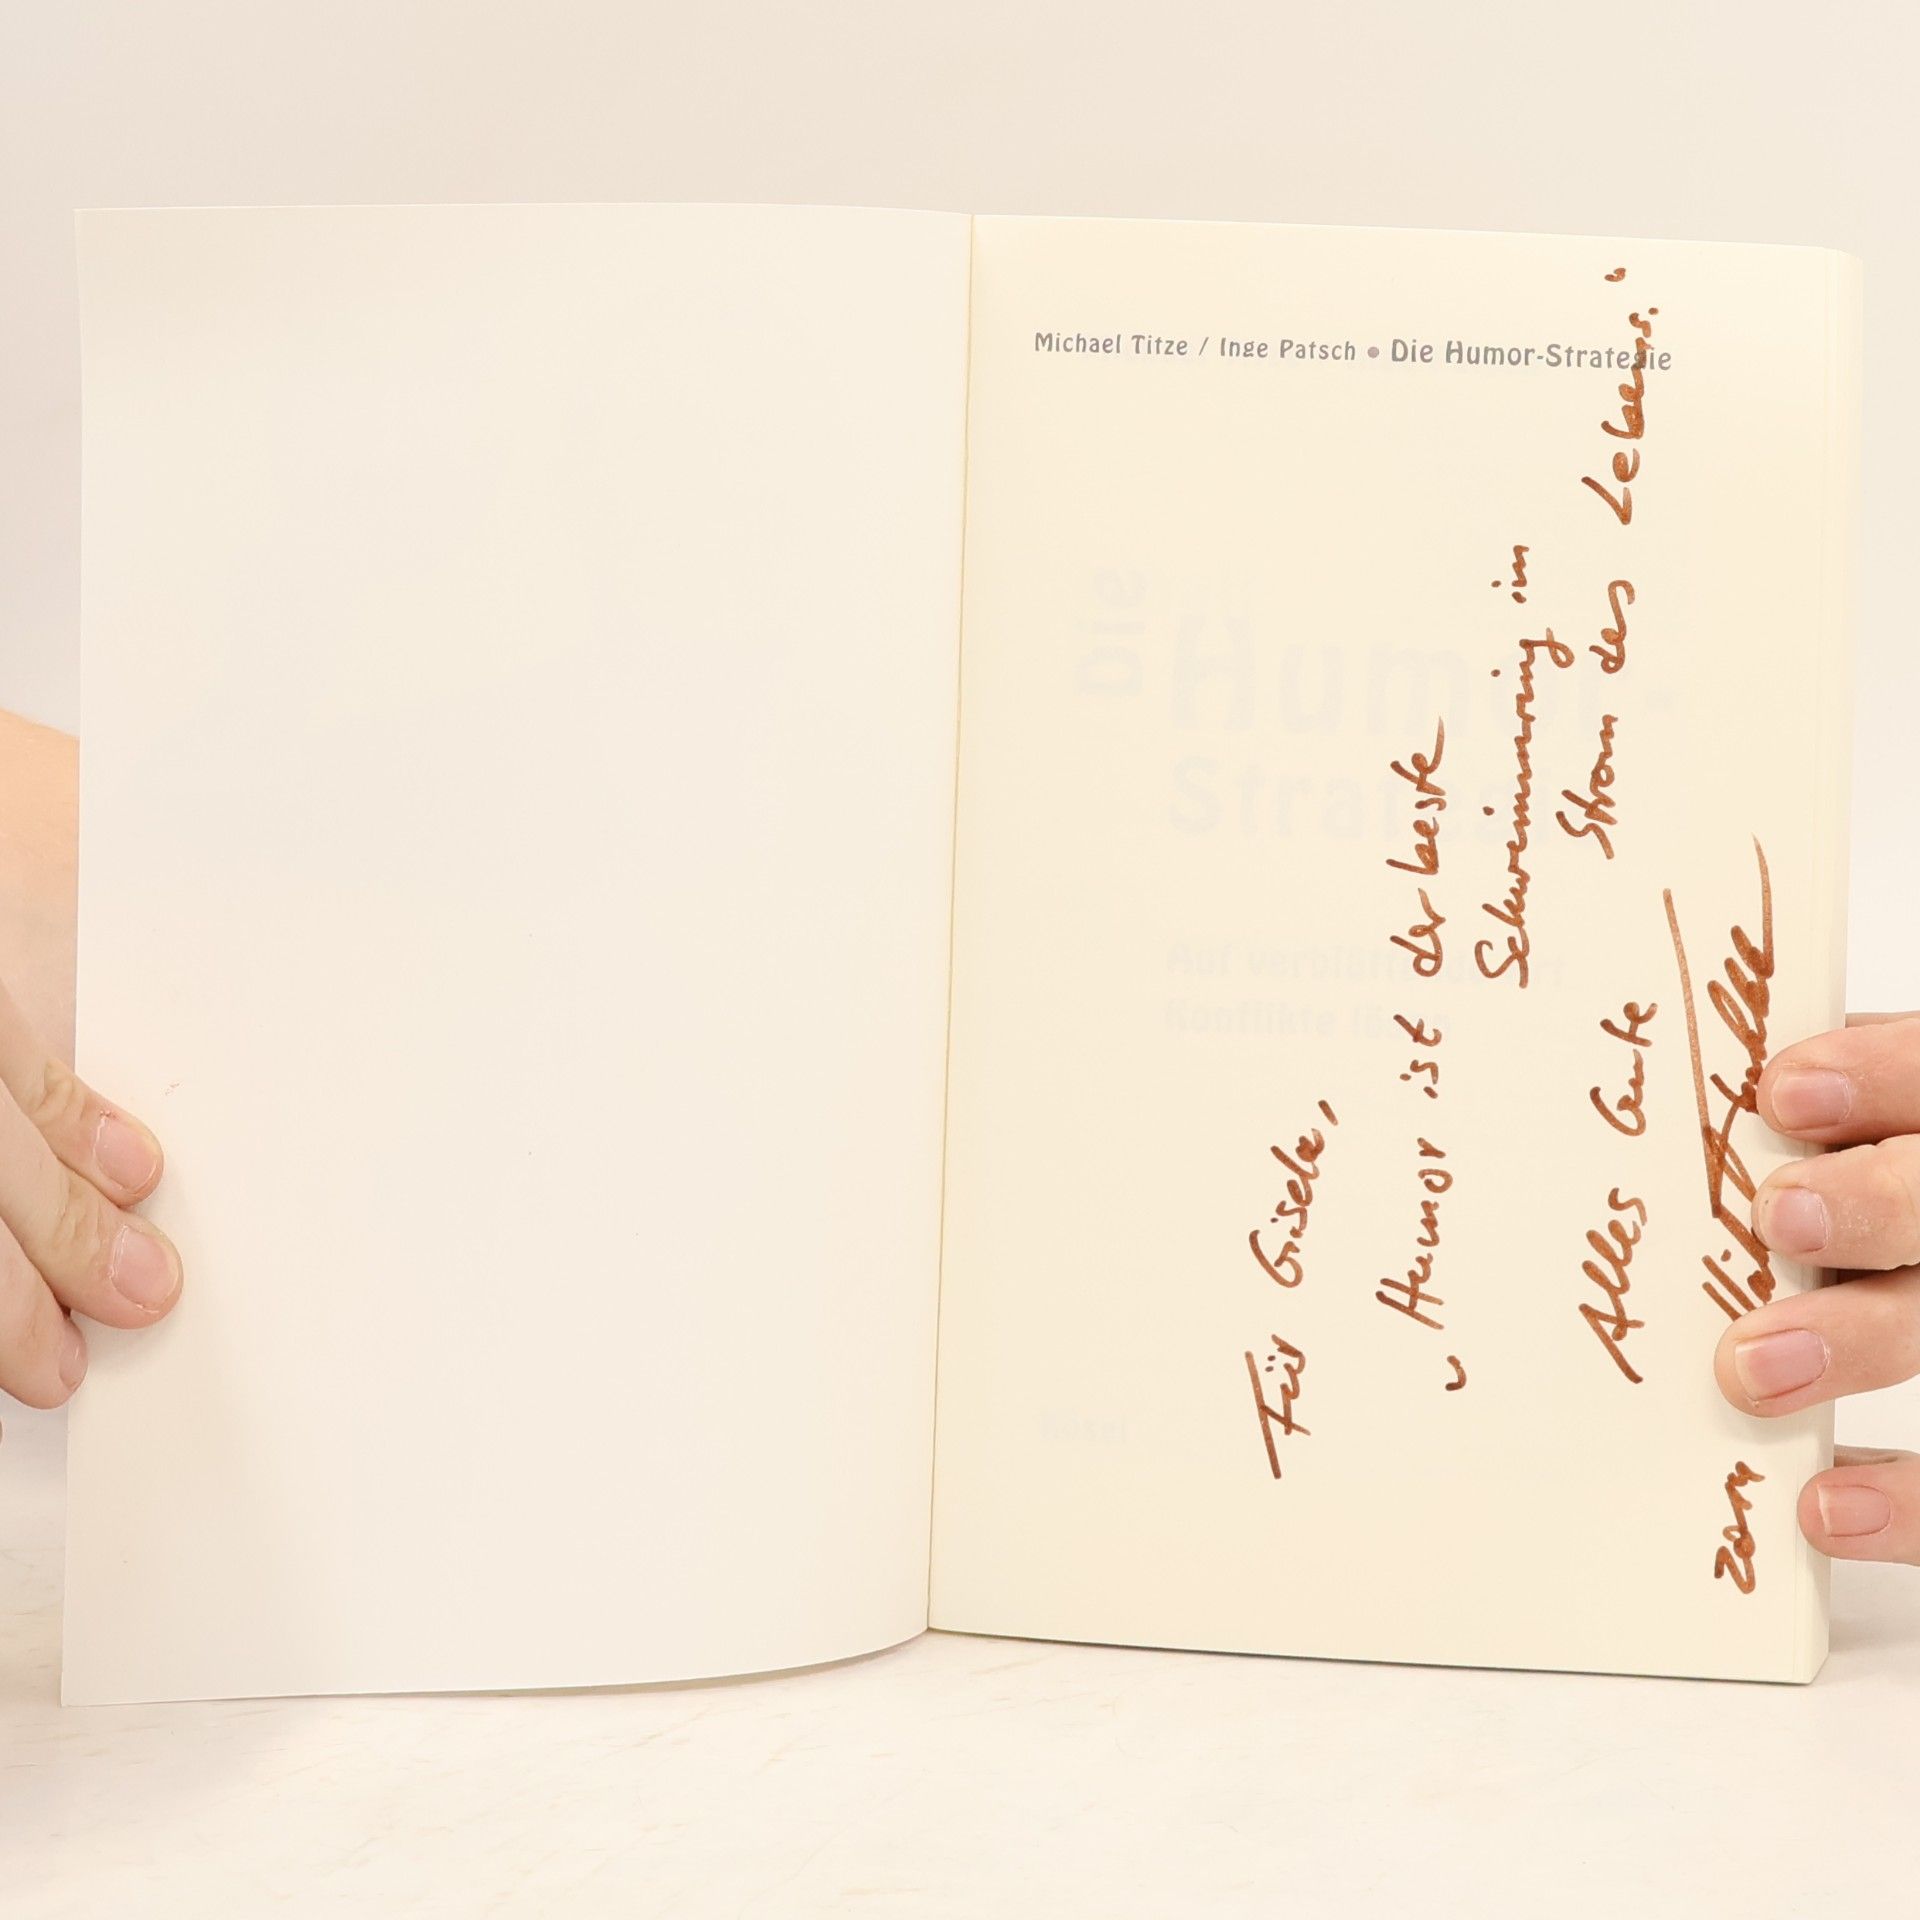 Michael Titze / Inge Patsch • Die Humor-Strategie
Für Gisela,
„Humor ist der beste
Schwimmring im
Strom des Lebens."
Alles Gute
Die
Humor-
Strategie
Auf verblüffende Art
Konflikte lösen
Kösel